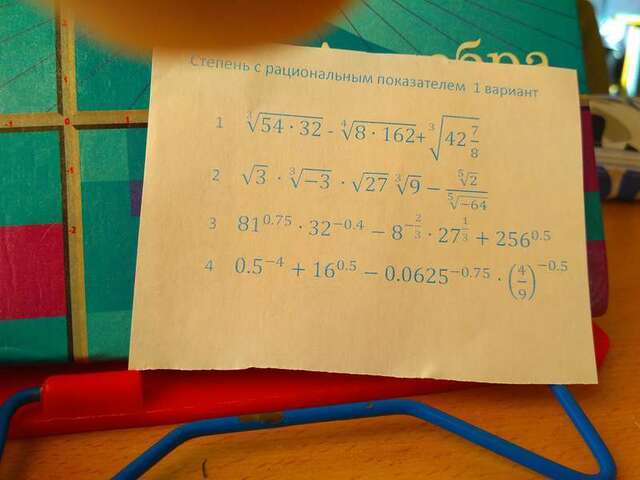 Алгебра
Степень с рациональным показателем 1 вариант
1 ∛(54 · 32) - ∜(8 · 162) + ∛(42 7/8)
2 √3 · ∛(−3) · √27 ∛9 − ⁵√2 / ⁵√(−64)
3 81^0.75 · 32^−0.4 − 8^(−2/3) · 27^(1/3) + 256^0.5
4 0.5^−4 + 16^0.5 − 0.0625^−0.75 · (4/9)^−0.5